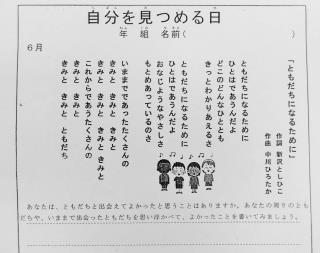 自分を見つめる日
年 組 名前( )
6月
「ともだちになるために」
作詞 新沢としひこ
作曲 中川ひろたか
ともだちになるために
ひとはであうんだよ
どこのどんなひととも
きっとわかりあえるさ
ともだちになるために
ひとはであうんだよ
おなじようなやさしさ
もとめあっているのさ
いままでであったたくさんの
きみと きみと きみと
きみと きみと きみと
これからであうたくさんの
きみと きみと きみと きみと
きみと きみと ともだち
あなたは、ともだちと出会えてよかったと思うことはありますか。あなたの周りのとも
だちや、いままで出会ったともだちを思い浮かべて、よかったことを書いてみましょう。